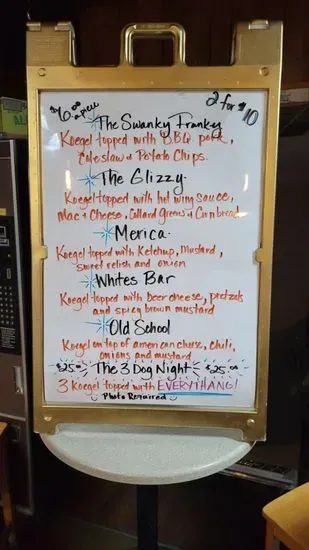 $6.00 apiece
2 for $10
The Swanky Franky
Koegel topped with B.B.Q. pork,
Coleslaw & Potato Chips.
The Glizzy.
Koegel topped with hot wing sauce,
Mac & Cheese, Collard greens & Cornbread
Merica.
Koegel topped with Ketchup, Mustard,
sweet relish and onion
Whites Bar
Koegel topped with beer cheese, pretzels
and spicy brown mustard
Old School
Koegel on top of american cheese, chili,
onions and mustard
$25.00 The 3 Dog Night $25.00
3 Koegel topped with EVERYTHANG!
Photo Required